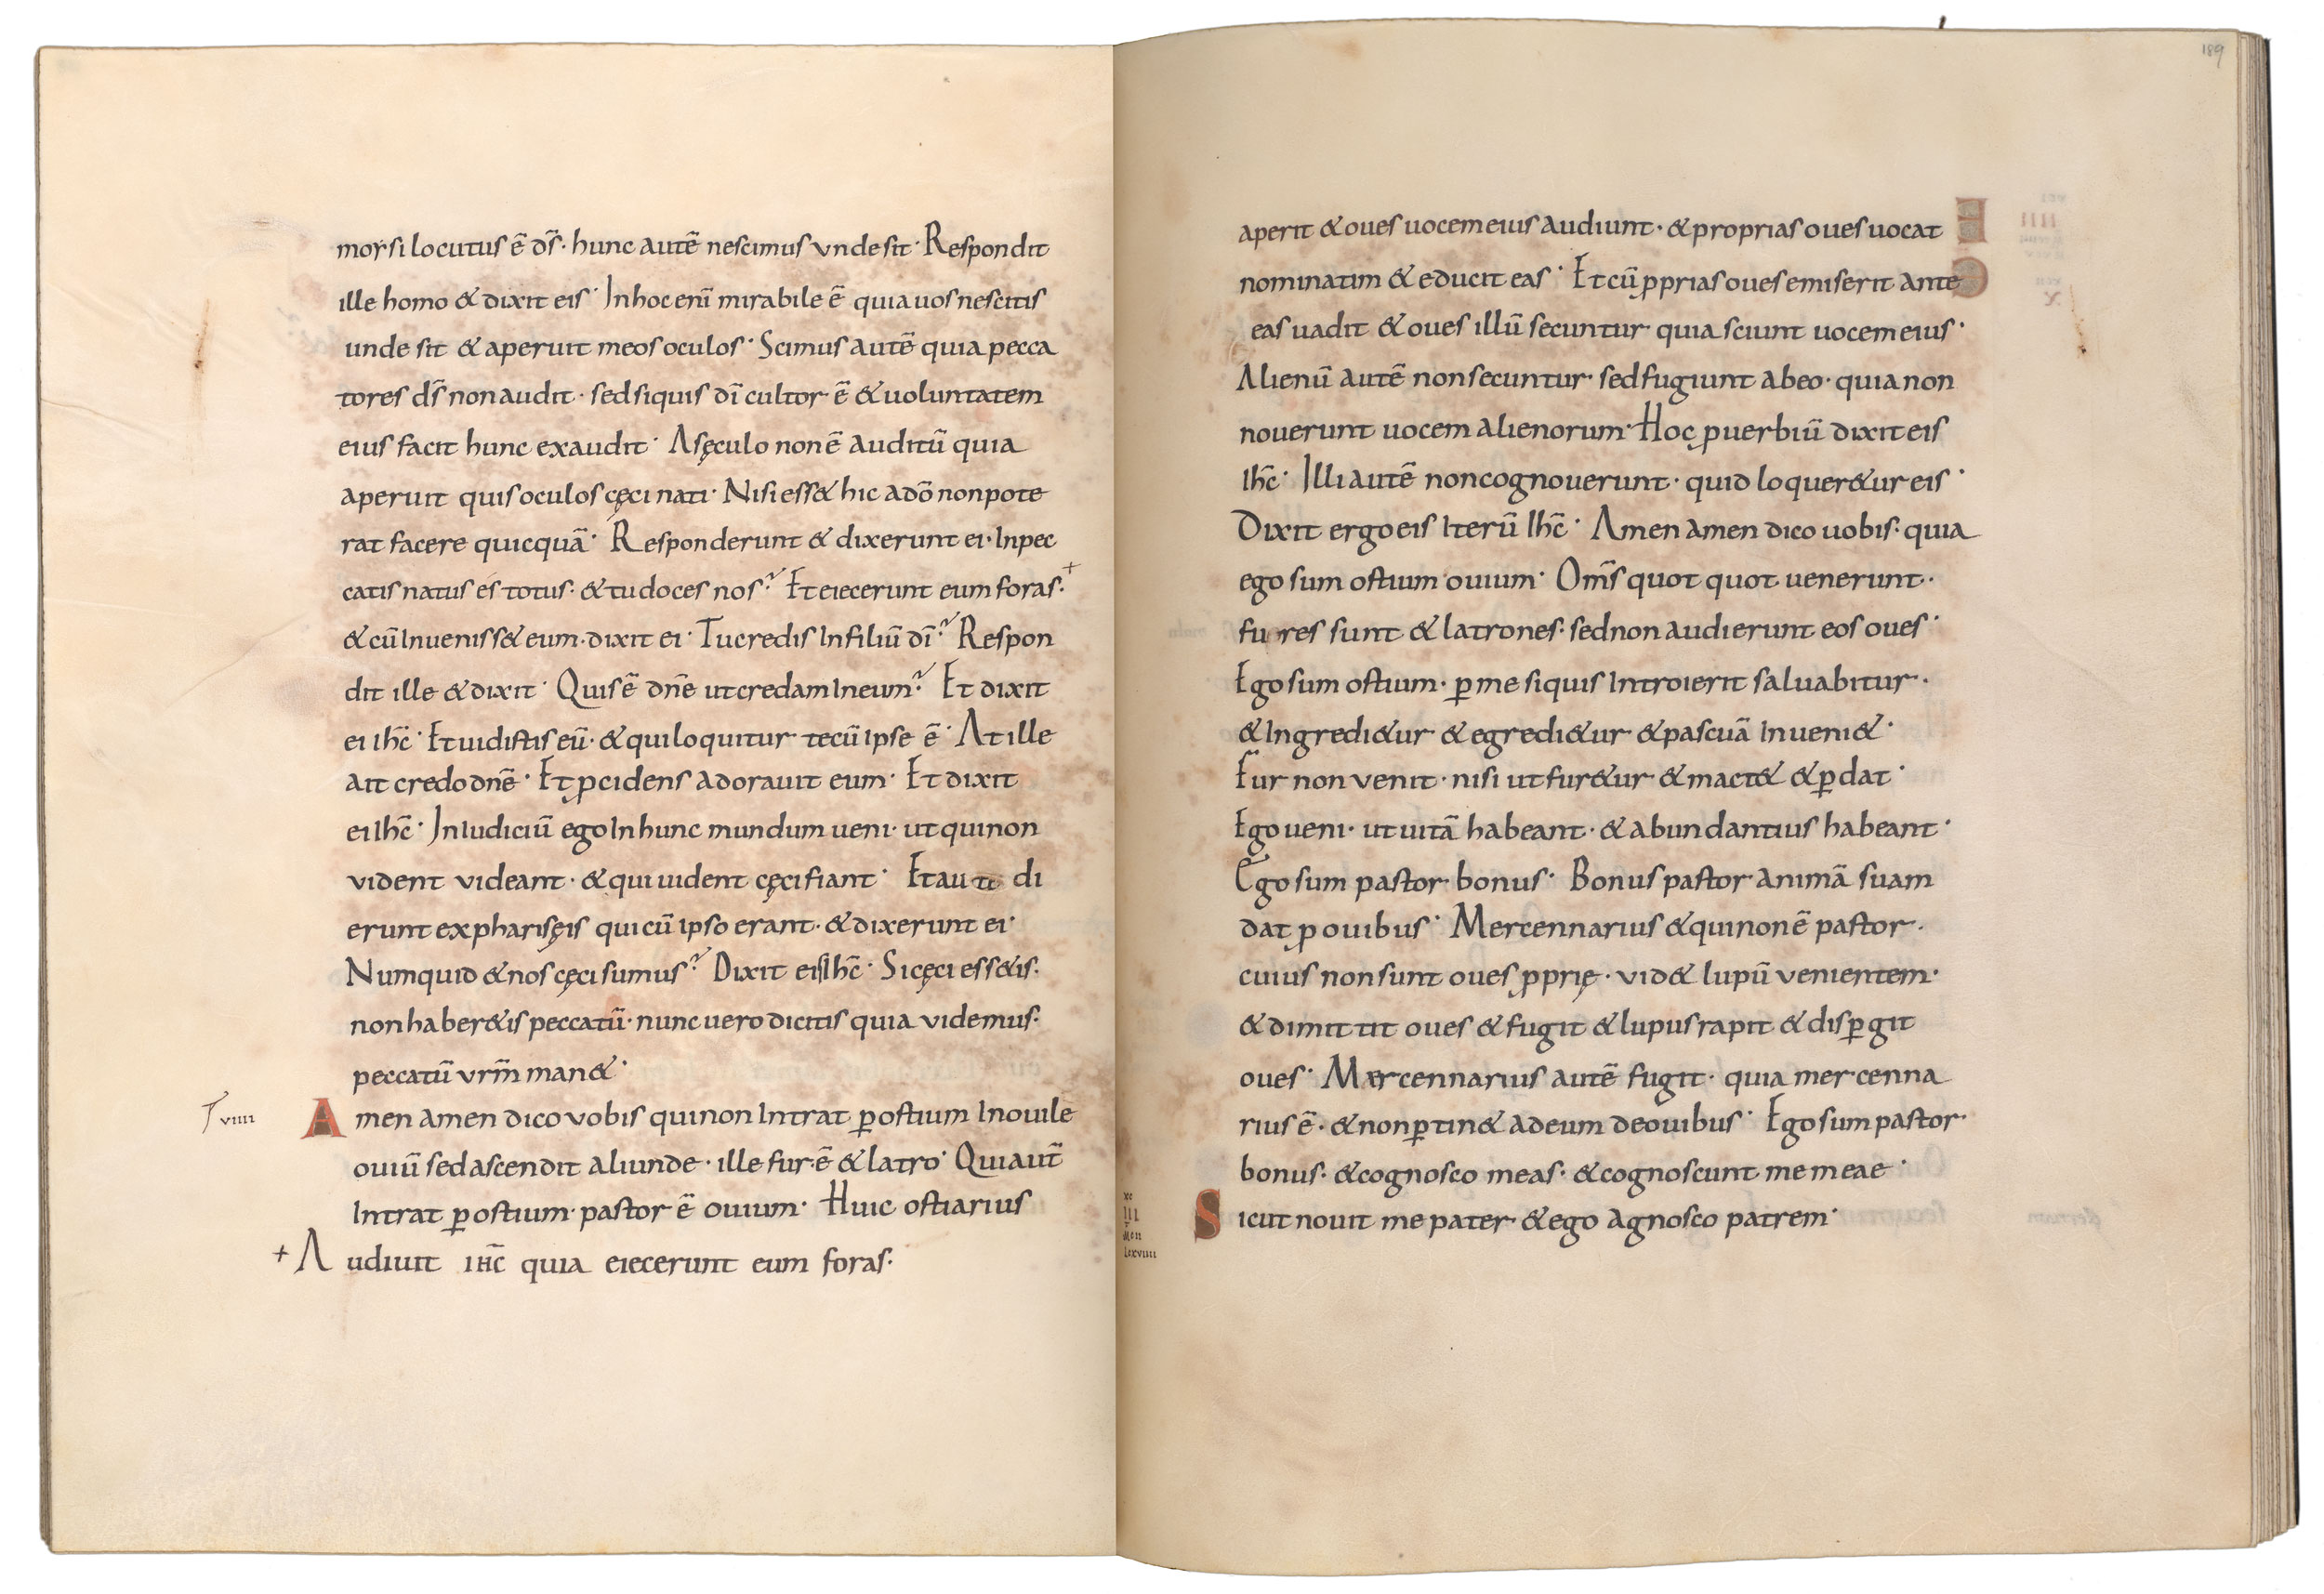 morsi locutus ē dſ̄· hunc autē nescimus vnde sit· Respondit
ille homo & dixit eis· In hoc eni̅ mirabile ē quia uos nescitis
unde sit & aperuit meos oculos· Scimus autē quia pecca
tores ds̄ non audit· sed siquis dī cultor ē & uoluntatem
eius facit hunc exaudit· A sęculo non ē auditū quia
aperuit quis oculos cęci nati· Nisi ess& hic a dō non pote
rat facere quicquā· Responderunt & dixerunt ei· In pec
catis natus es totus· & tu doces nos? Et eiecerunt eum foras·+
& cū Inueniss& eum· dixit ei· Tu credis In filiū dī? Respon
dit ille & dixit· Quis ē dnē ut credam In eum? Et dixit
ei ihc̄· Et uidistis eū· & qui loquitur tecū ipse ē· At ille
ait credo dnē· Et ꝓcidens adorauit eum· Et dixit
ei Ihc̄· In Iudiciū ego In hunc mundum ueni· ut qui non
vident videant· & qui uident cęci fiant· Et au di
erunt ex pharisęis qui cū ipso erant· & dixerunt ei·
Numquid & nos cęci sumus? Dixit eis Ihc̄· Si cęci ess&is·
non haber&is peccatū· nunc uero dicitis quia videmus·
peccatū vrm̄ man&·
viiii Amen amen dico vobis qui non Intrat ꝑ ostium In ouile
ouiū sed ascendit aliunde· ille fur ē & latro· Qui aut̄
Intrat ꝑ ostium· pastor ē ouium· Huic ostiarius
+ Audiuit ihc̄ quia eiecerunt eum foras·
189
aperit & oues uocem eius audiunt· & proprias oues uocat
nominatim & educit eas· Et cū ꝓprias oues emiserit ante
eas uadit & oues illū secuntur quia sciunt uocem eius·
Alienū autē non secuntur sed fugiunt ab eo· quia non
nouerunt uocem alienorum· Hoc ꝓuerbiū dixit eis
Ihc̄· Illi autē non cognouerunt· quid loquer&ur eis·
Dixit ergo eis Iterū Ihc̄· Amen amen dico uobis· quia
ego sum ostium ouium· Om̄s quot quot uenerunt·
fures sunt & latrones· sed non audierunt eos oues·
Ego sum ostium· ꝑ me siquis Introierit saluabitur·
& Ingredi&ur & egredi&ur & pascuā Inueni&·
Fur non venit· nisi ut fur&ur & mact& & ꝑdat·
Ego ueni· ut uitā habeant· & abundantius habeant·
Ego sum pastor bonus· Bonus pastor animā suam
dat ꝓ ouibus· Mercennarius & qui non ē pastor·
cuius non sunt oues ꝓprię· vid& lupū venientem·
& dimittit oues & fugit & lupus rapit & disꝑgit
oues· Mercennarius autē fugit· quia mercenna
rius ē· & non ꝑtin& ad eum de ouibus· Ego sum pastor
bonus· & cognosco meas· & cognoscunt me meae·
Sicut nouit me pater & ego agnosco patrem·
xc
III